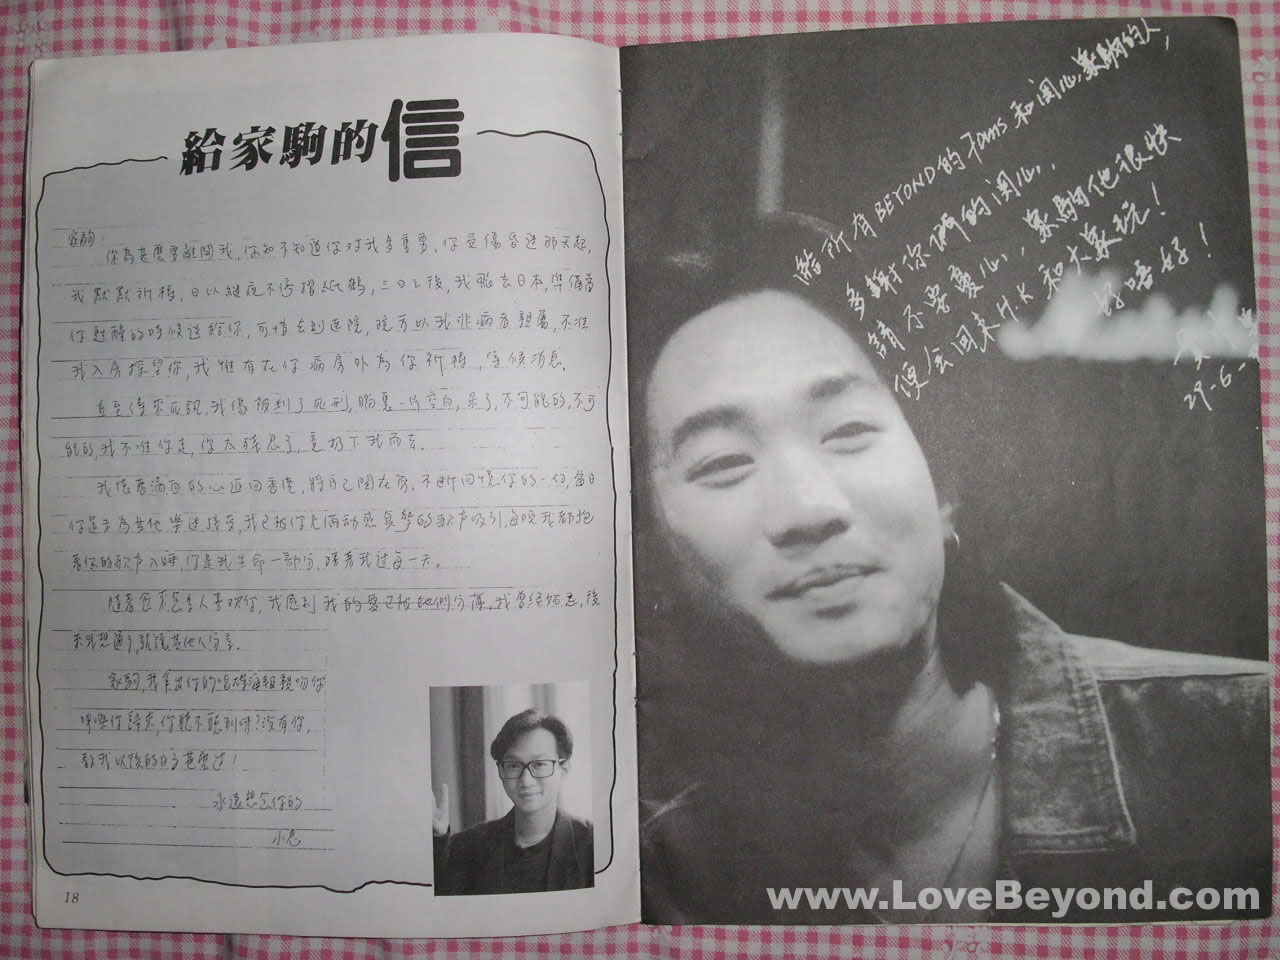 給家駒的信
家駒:
你為甚麼要離開我,你知不知道你對我多重要,你受傷昏迷那天起,
我默默祈禱,日以繼夜不停摺紙鶴,三日之後,我飛去日本,準備當
你甦醒的時候送給你,可惜去到医院,院方以我非病者親屬,不准
我入房探望你,我惟有在你病房外為你祈禱,等候消息。
直至傳來死訊,我像被判了死刑,腦裏一片空白,呆了,不可能的,不可
能的,我不准你走,你太殘忍了,竟扔下我而去。
我懷著滿面的心返回香港,將自己關在房,不断回憶你的一切,當日
你還未為其他樂迷接受,我已被你充滿动感真摯的歌声吸引,每晚我都抱
著你的歌声入睡,你是我生命一部分,陪著我过每一天。
隨著愈來愈多人喜欢你,我感到我的愛已被他们分薄,我曾经妒忌,後
來我想通了,就讓其他人分享。
家駒,我拿出你的唱碟海報親吻你
呼喚你歸來,你聽不聽到呀?没有你,
教我以後的日子甚麼过!
永遠想念你的
18
給所有BEYOND的Fans和関心家駒的人,
多謝你們的関心,
請不要憂心,家駒他很快
便会回来HK和大家玩!
好唔好!
29-6-
www.LoveBeyond.com